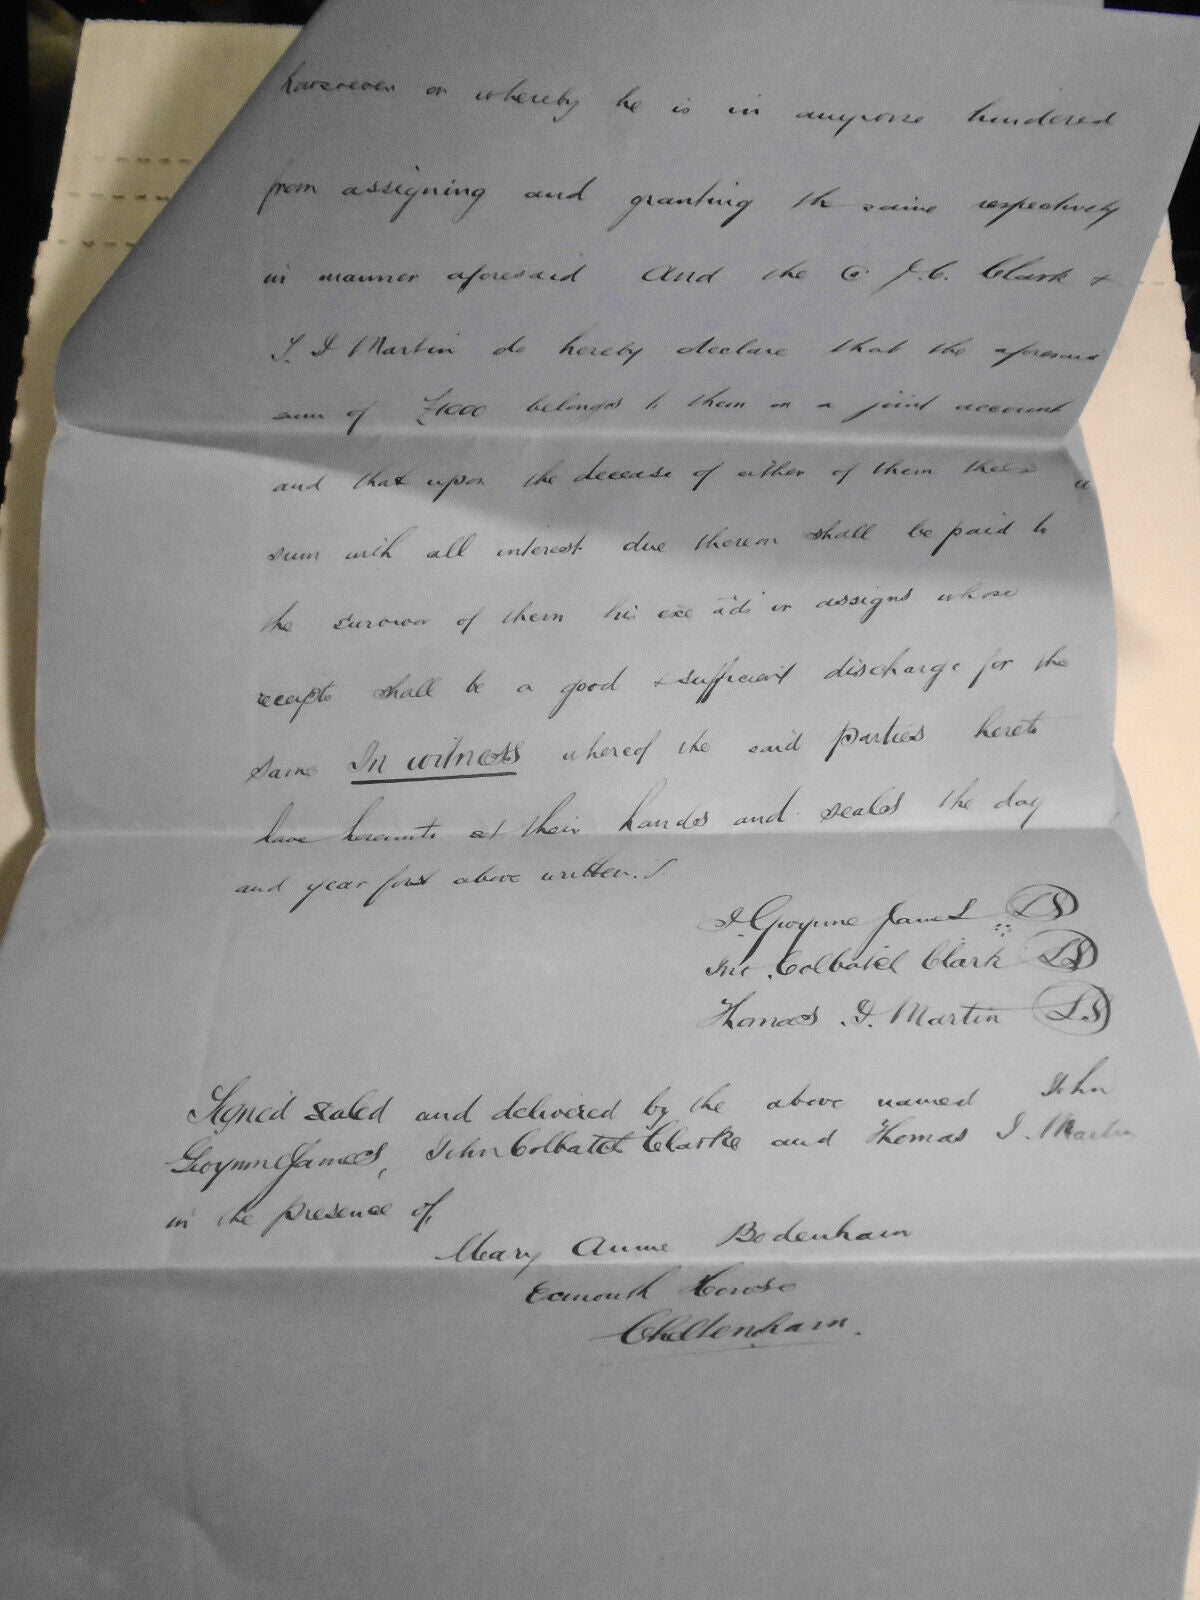 howsoever or whereby he is in anywise hindered
from assigning and granting the same respectively
in manner aforesaid And the J. C. Clark &
T. I Martin do hereby declare that the aforesaid
sum of £1000 belongs to them on a joint account
and that upon the decease of either of them the sd
sum with all interest due thereon shall be paid to
the survivor of them his exe ads or assigns whose
receipts shall be a good & sufficient discharge for the
same In witness whereof the said parties hereto
have hereunto set their hands and seales the day
and year first above written.
J. Gwynne James LS
Jno. Colbatch Clark LS
Thomas I. Martin LS
Signed sealed and delivered by the above named John
Gwynne James, John Colbatch Clarke and Thomas I. Martin
in the presence of,
Mary Anne Bodenham
Exmouth House
Cheltenham.